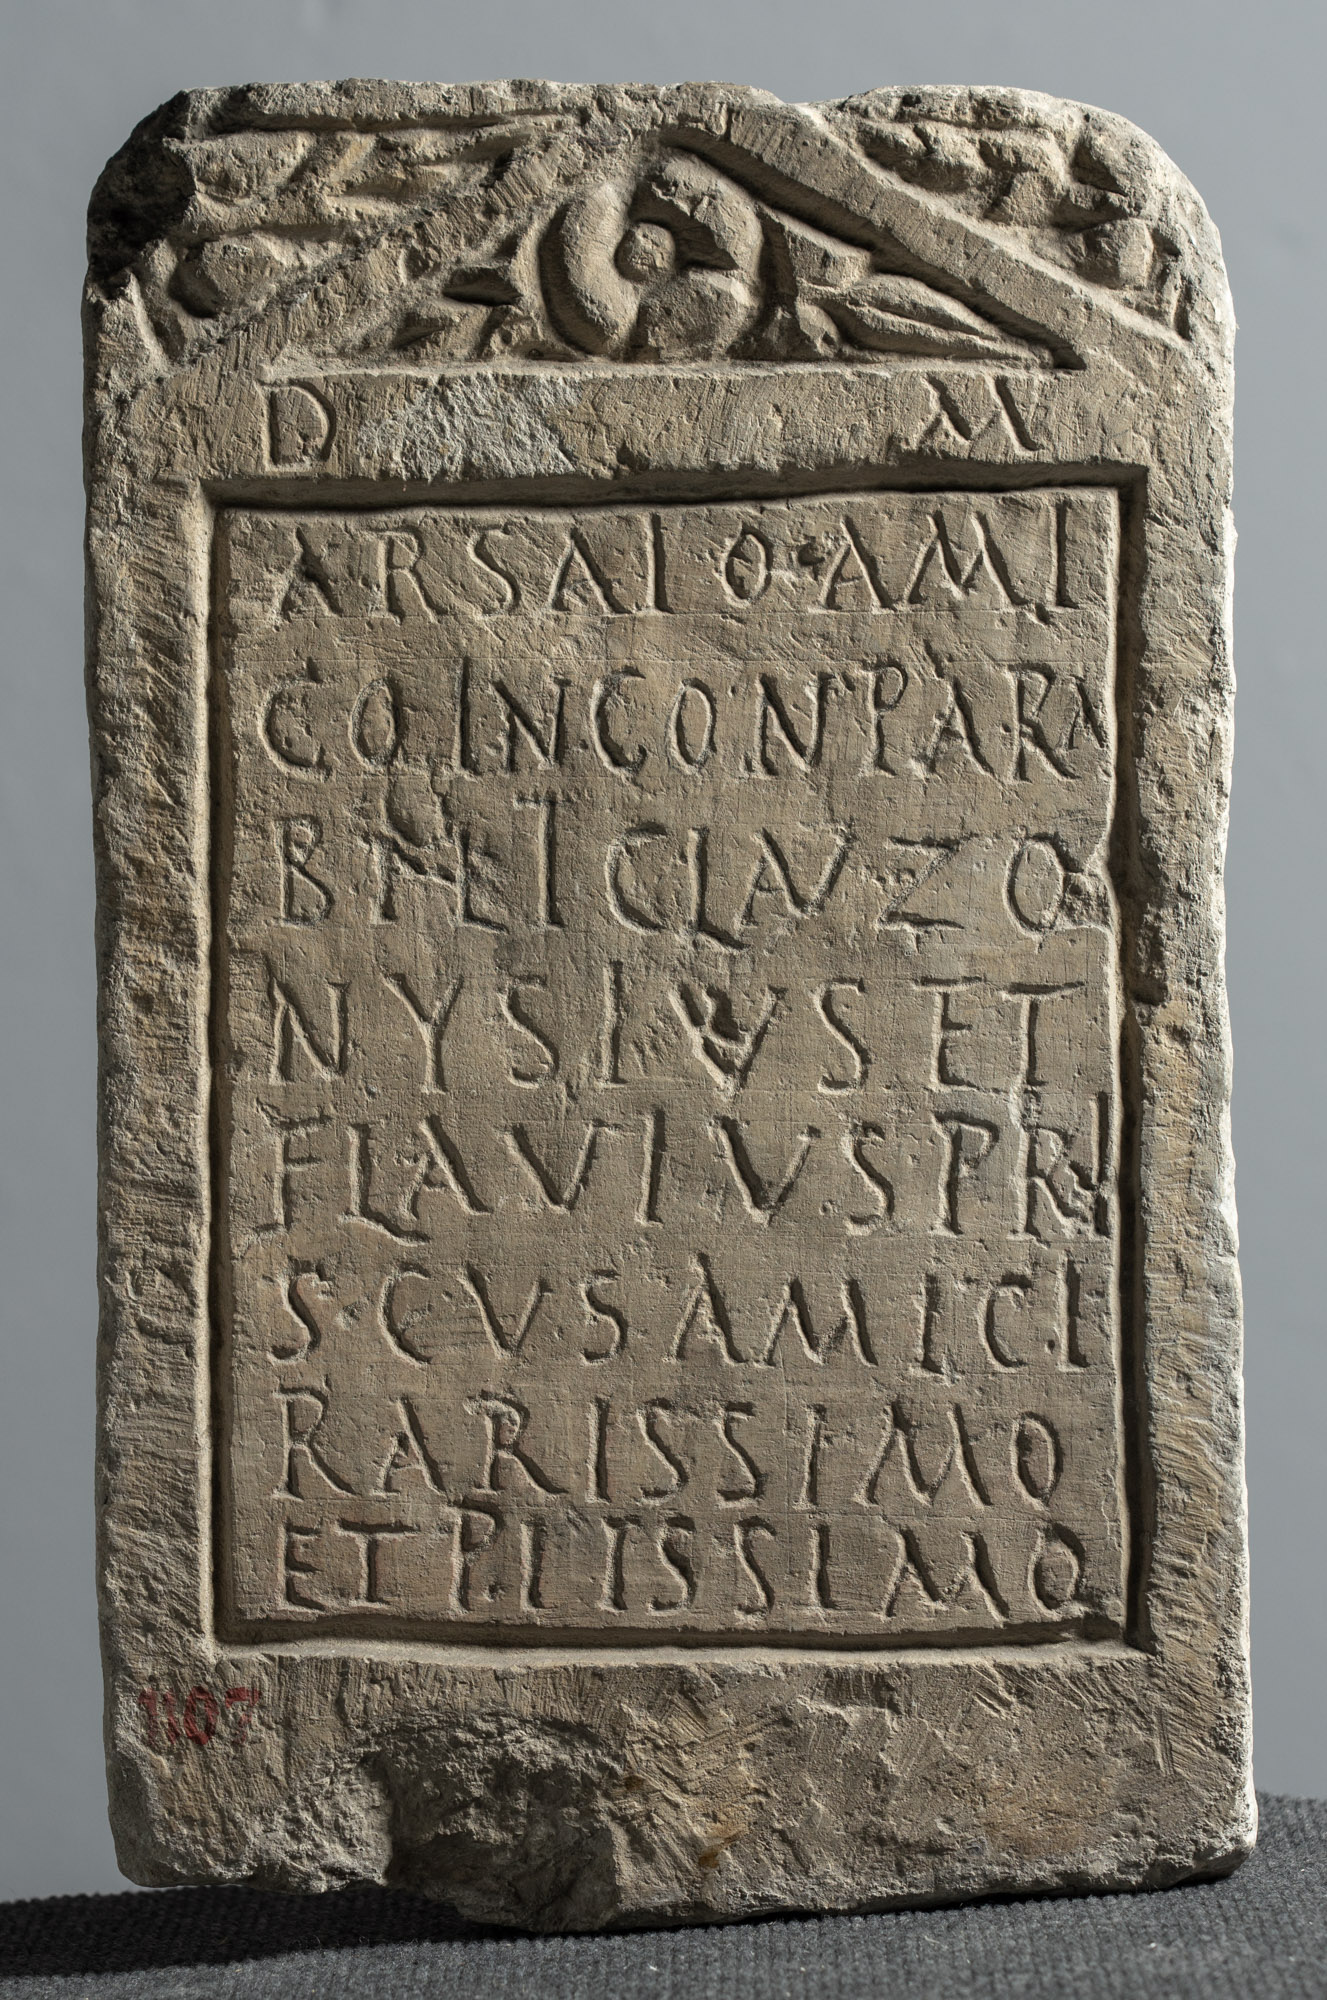 D M
ARSAIO AMI
CO INCONPARA
BILI T CLAV ZO
NYSIVS ET
FLAVIVS PRI
SCVS AMICI
RARISSIMO
ET PIISSIMO
1107